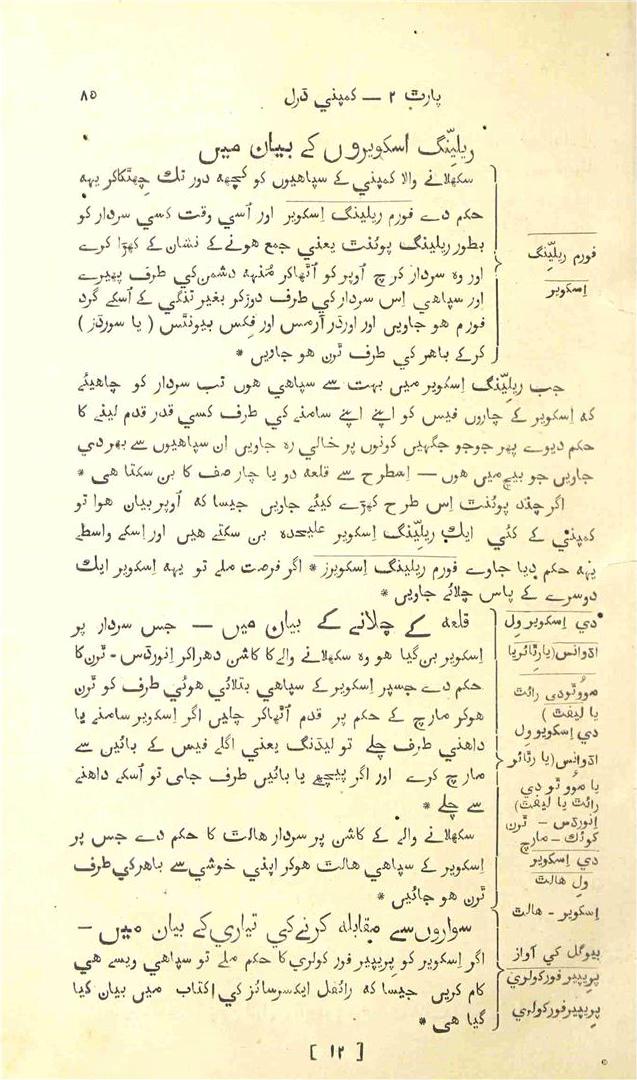 پارٹ ۲ — کمپني ڈرل
۸۵
ریلیّنگ اسکویروں کے بیان میں
سکھلانے والا کمپني کے سپاھیوں کو کچھہ دور تك چھٹکاکر یہہ
حکم دے فورم ریلینگ اِسکویر اور اُسي وقت کسي سردار کو
بطور ریلینگ پوئنٹ یعني جمع ھونے کے نشان کے کھڑا کرے
اور وہ سردار کرچ اوپر کو اُٹھاکر مُنہہ دشمن کي طرف پھیرے
اور سپاھي اِس سردار کي طرف دوڑکر بغیر تنگي کے اُسکے گرد
فورم ھو جاویں اور اورڈر آرمس اور فِکس بیونٹس ( یا سورڈز )
کرکے باھر کي طرف ٹرن ھو جاویں *
فورم ریلیّنگ
اِسکویر
جب ریلِیّنگ اِسکویر میں بہت سے سپاھي ھوں تب سردار کو چاھیئے
که اِسکویر کے چاروں فیس کو اپنے اپنے سامنے کي طرف کسي قدر قدم لینے کا
حکم دیوے پھر جوجو جگہیں کونوں پر خالي رہ جاویں ان سپاھیوں سے بھر دي
جاویں جو بیچ میں ھوں — اِسطرح سے قلعه دو یا چار صف کا بن سکتا ھی *
اگر چند پوئنٹ اِس طرح کھڑے کیئے جاویں جیسا که اُوپر بیان ھوا تو
کمپني کے کئي ایك ریلیّنگ اِسکویر علیحدہ بن سکتے ھیں اور اِسکے واسطے
یہه حکم دیا جاوے فورم ریلینگ اِسکویرز * اگر فرصت ملے تو یہه اسکویر ایك
دوسرے کے پاس چلائے جاویں *
قلعه کے چلانے کے بیان میں — جس سردار پر
اِسکویر بن گیا ھو وہ سکھلانے والے کا کاشن دھراکر اِنورڈس - ٹرن کا
حکم دے جسپر اِسکویر کے سپاھي بتلائي ھوئي طرف کو ٹرن
ھوکر مارچ کے حکم پر قدم اُٹھاکر چلیں اگر اِسکویر سامنے یا
داھني طرف چلے تو لیڈنگ یعني اگلے فیس کے بائیں سے
مارچ کرے اور اگر پیچھے یا بائیں طرف جاے تو اُسکے داھنے
سے چلے *
دي اِسکویر وِل
اڈوانس (یا رِٹائر یا
مووُٹو دي رائٹ
یا لیفٹ )
دي اِسکویر وِل
اڈوانس (یا رٹائر
یا مووُ ٹو دي
رائٹ یا لیفٹ)
اِنورڈس - ٹرن
کوئك - مارچ
سکھلانے والے کے کاشن پر سردار ھالٹ کا حکم دے جس پر
اِسکویر کے سپاھي ھالٹ ھوکر اپني خوشي سے باھر کي طرف
ٹرن ھو جائیں *
دي اِسکویر
وِل ھالٹ
اِسکویر - ھالٹ
سواروں سے مقابله کرنے کي تیاري کے بیان میں —
اگر اِسکویر کو پریپیر فور کولري کا حکم ملے تو سپاھي ویسے ھي
کام کریں جیسا که رائفل ایکسرسائز کي اکتاب میں بیان کیا
گیا ھی *
بیوگل کي آواز
پریپیر فور کولري
پریپیر فور کولري
[ ۱۲ ]